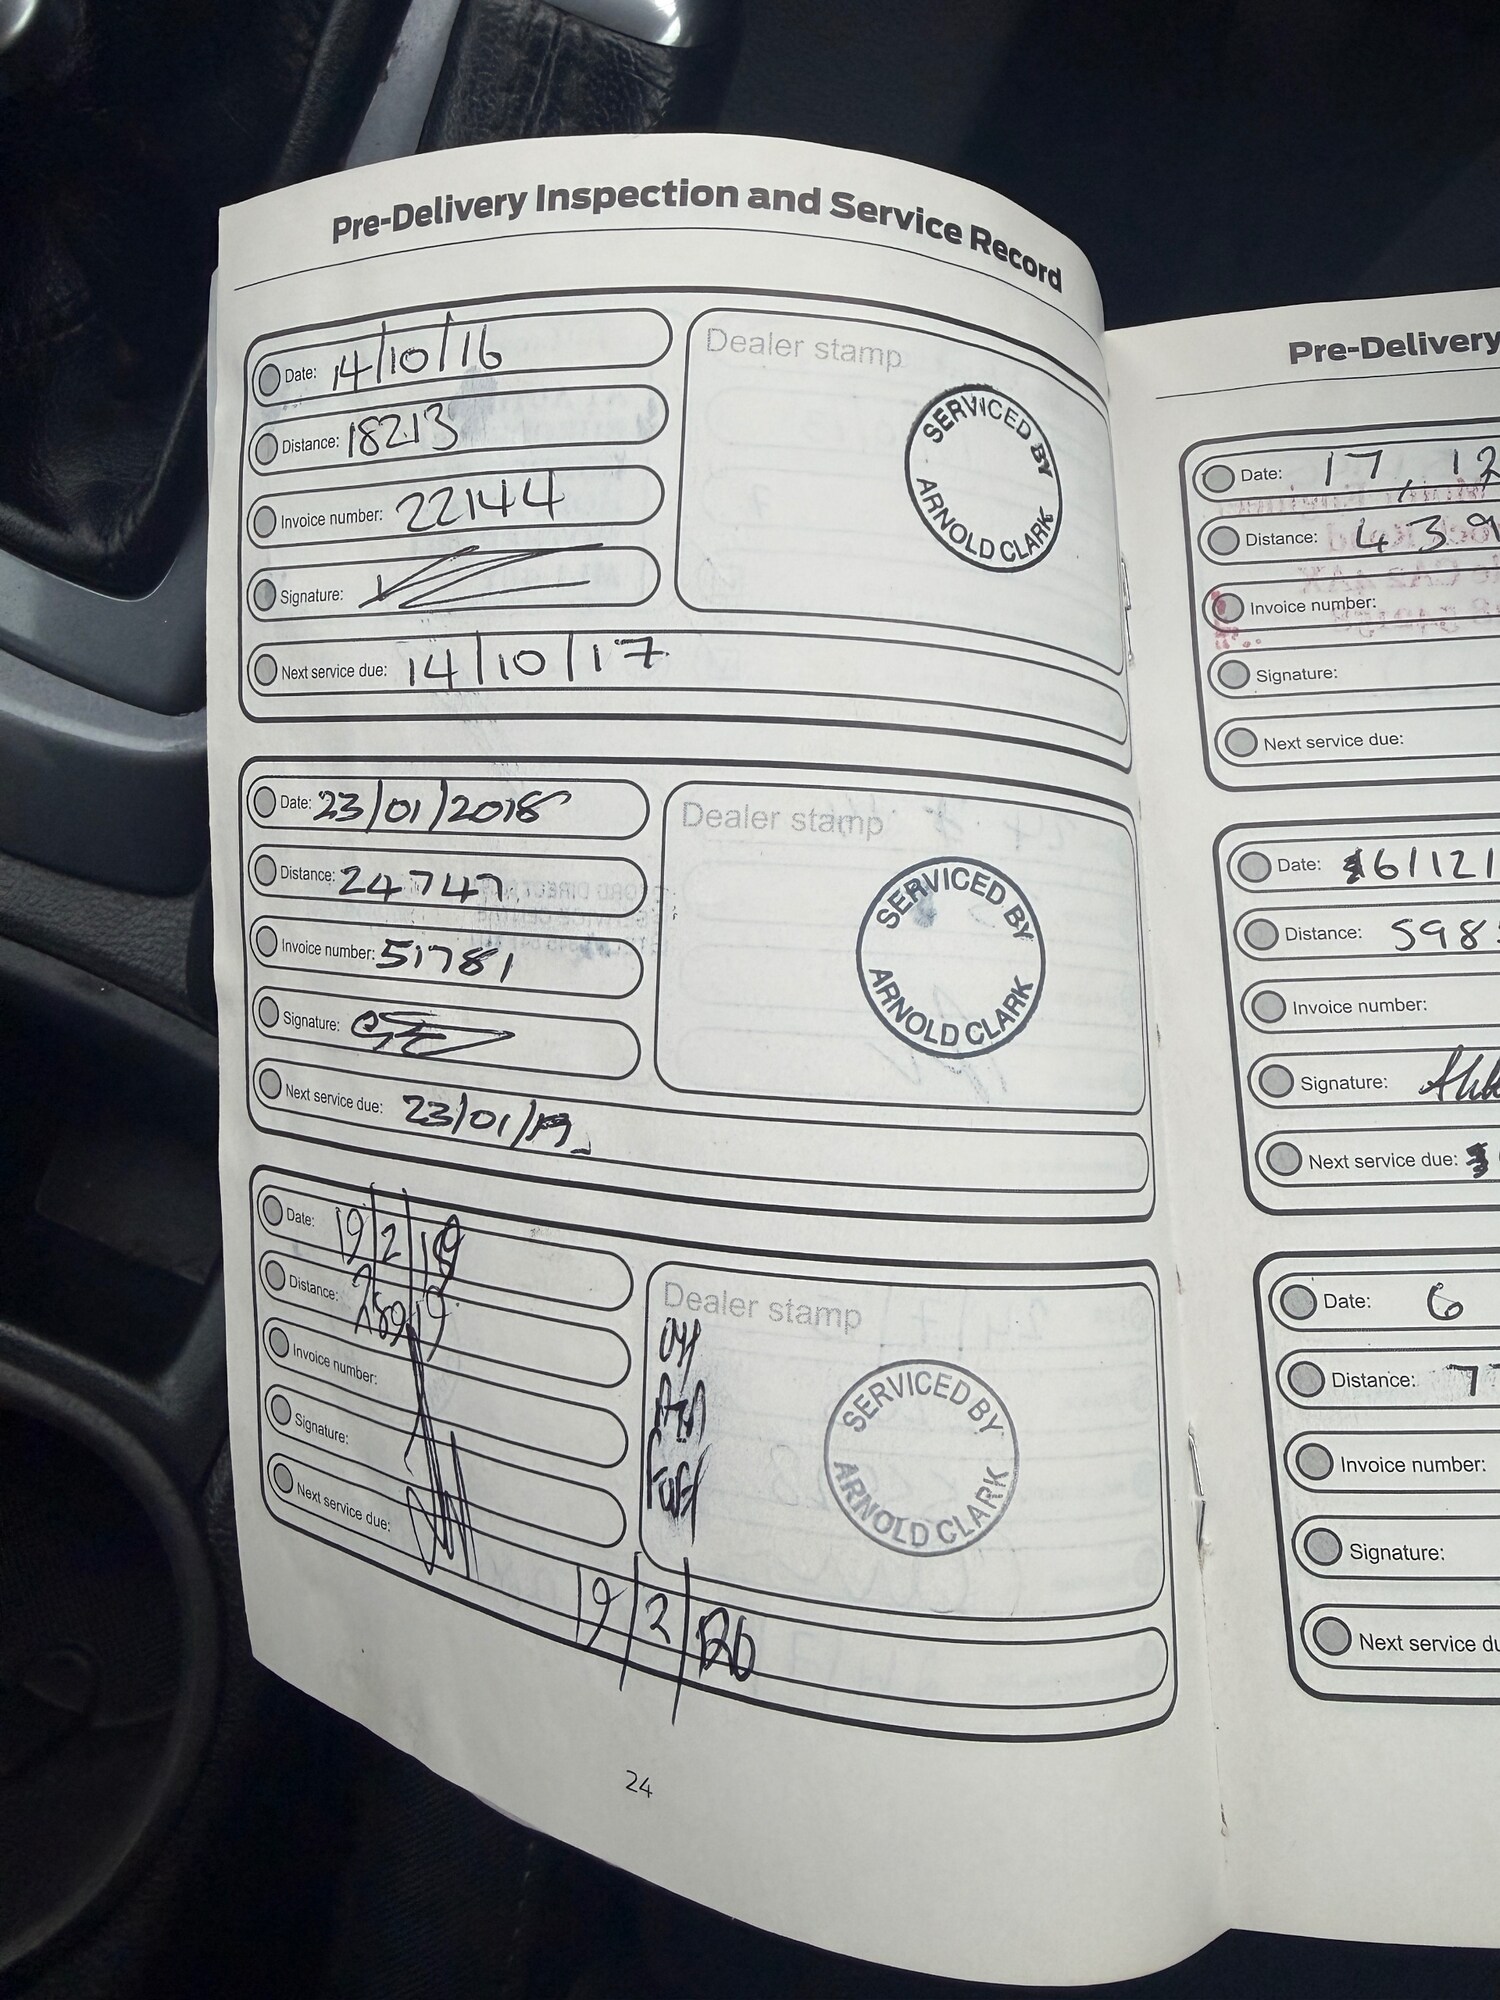 Pre-Delivery Inspection and Service Record
Date: 14/10/16
Distance: 18213
Invoice number: 22144
Signature:
Next service due: 14/10/17
Dealer stamp
SERVICED BY
ARNOLD CLARK
Date: 23/01/2018
Distance: 24747
Invoice number: 51781
Signature:
Next service due: 23/01/19
Dealer stamp
SERVICED BY
ARNOLD CLARK
Date: 19/2/19
Distance:
Invoice number:
Signature:
Next service due:
19/2/20
Dealer stamp
SERVICED BY
ARNOLD CLARK
24
Pre-Delivery
Date: 17, 12
Distance: 439
Invoice number:
Signature:
Next service due:
Date: 6/12/
Distance: 598
Invoice number:
Signature:
Next service due:
Date: 6
Distance: 77
Invoice number:
Signature:
Next service du